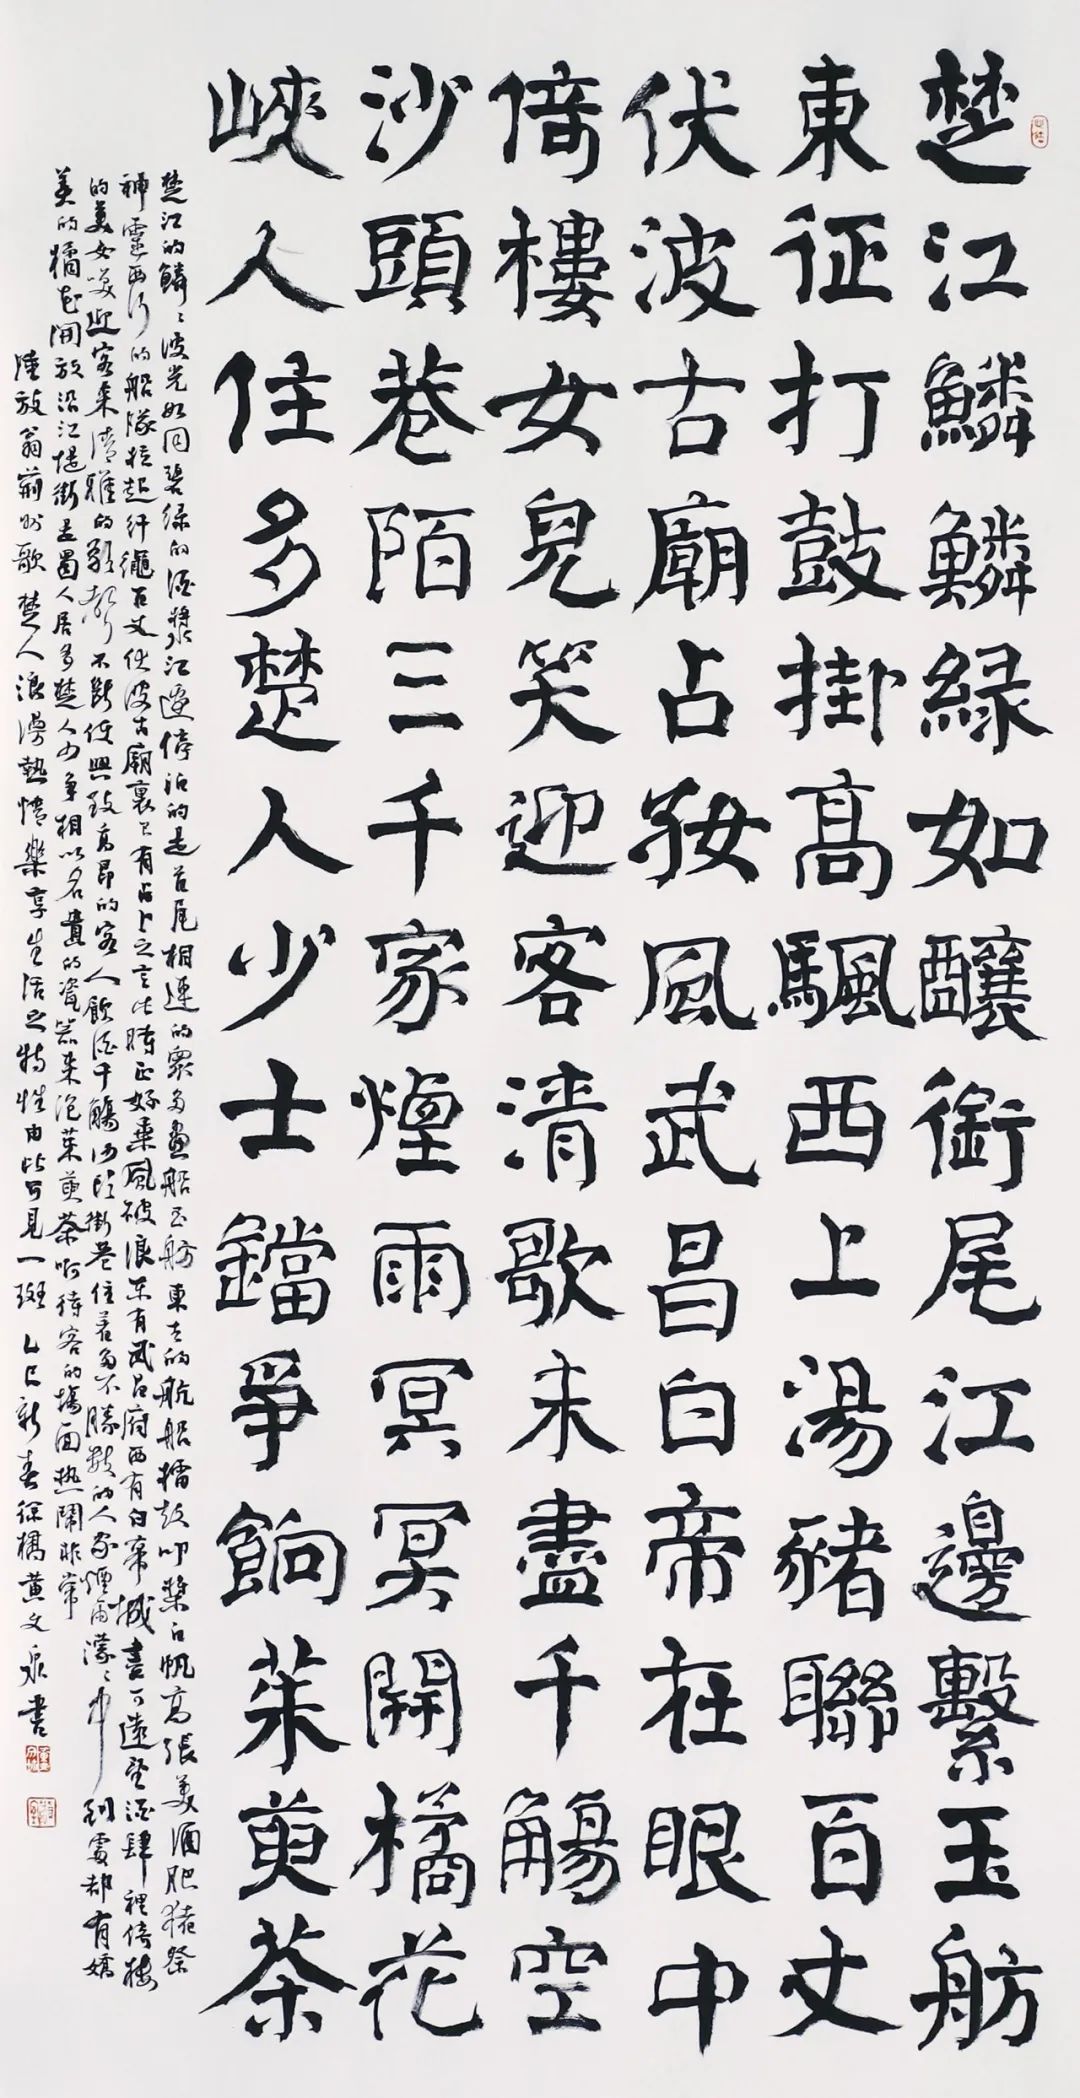 楚江鱗鱗緑如釀銜尾江邊繫玉舫
東征打鼓掛高颿西上湯豬聯百丈
伏波古廟占好風武昌白帝在眼中
倚樓女兒笑迎客清歌未盡千觴空
沙頭巷陌三千家煙雨冥冥開橘花
峽人住多楚人少士鐺爭餉茱萸茶
楚江的鱗々波光如同碧緑的酒漿江邊停泊的是首尾相連的衆多畫船玉舫東去的航船擂鼓叩槳白帆高張美酒肥猪祭
神靈西行的船隊拉起纤繩百丈伏波古廟裏有占卜之言此時正好乘風破浪东有武昌府西有白帝城盡可遠望酒肆裡倚樓
的美女笑迎客来清雅的歌聲不斷使興致高昂的客人飲酒千觴沙頭街巷住着多不勝數的人家煙雨濛々中到處都有嬌
美的橘花開放沿江堤街是蜀人居多楚人少争相以名貴的瓷器来泡茱萸茶待客的場面热鬧非常
陸放翁荊州歌楚人浪漫熱情樂享生活之特性由此可見一斑乙巳新春徐橋黄文泉書